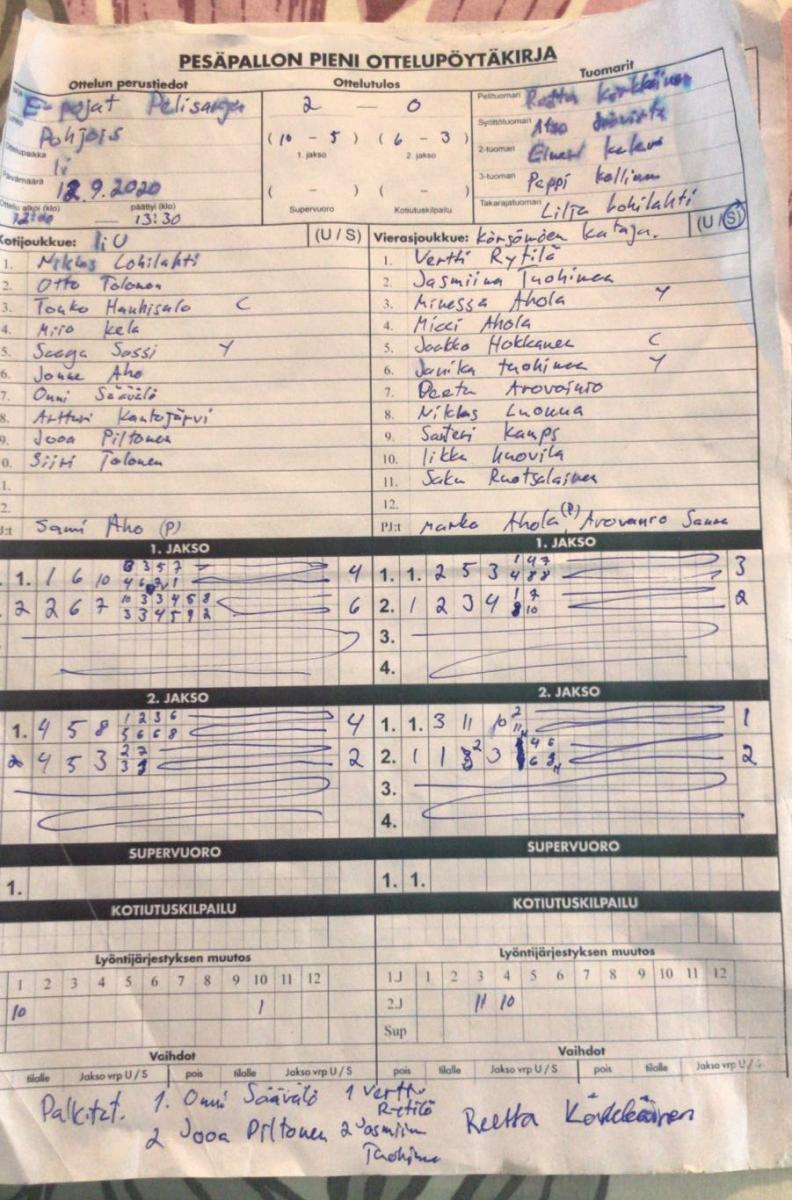 PESÄPALLON PIENI OTTELUPÖYTÄKIRJA
Ottelun perustiedot
Ottelutulos
Tuomarit
E-pojat Pelisarja
Pohjois
Ottelupaikka
Ii
Päivämäärä
12.9.2020
Ottelu alkoi (klo) päättyi (klo)
12:00 — 13:30
2 — 0
(10 - 5) (6 - 3)
1. jakso 2. jakso
( - ) ( - )
Supervuoro Kotiutuskilpailu
Pelituomari Reetta Kärkkäinen
Syöttötuomari
2-tuomari
3-tuomari Peppi
Takarajatuomari Lilja Lohilahti
Kotijoukkue: IiU (U / S)
1. Niklas Lohilahti
2. Otto Tolonen
3. Touko Hauhisalo C
4. Miio Kela
5. Saaga Sassi Y
6. Jonne Aho
7. Onni Säävälä
8. Artturi Kantojärvi
9. Jooa Piltonen
0. Siiri Tolonen
1.
2.
J:t Sami Aho (P)
Vierasjoukkue: Kärsämäen Kataja. (U / S)
1. Vertti Rytilä
2. Jasmiina Tuohinen
3. Minessa Ahola Y
4. Micci Ahola
5. Jaakko Hokkanen C
6. Janika Tuohinen Y
7. Peetu Arovainio
8. Niklas Luonua
9. Santeri Kamps
10. Iikka Huovila
11. Saku Ruotsalainen
12.
PJ:t Marko Ahola (P) Arovainio Sanna
1. JAKSO
1. 1 6 10 4
2 2 6 7 10 3 3 4 5 8 6
3 3 4 5 9 2
1. JAKSO
1. 1. 2 5 3 1 4 7 3
4 8 8
2. 1 2 3 4 1 7 2
8 10
3.
4.
2. JAKSO
1. 4 5 8 1 2 3 6 4
5 6 6 8
2 4 5 3 2 7 2
2. JAKSO
1. 1. 3 11 10 2 1
2. 1 1 3 4 6 2
3.
4.
SUPERVUORO
1.
SUPERVUORO
1. 1.
KOTIUTUSKILPAILU
KOTIUTUSKILPAILU
Lyöntijärjestyksen muutos
1 2 3 4 5 6 7 8 9 10 11 12
10 1
Lyöntijärjestyksen muutos
1J 1 2 3 4 5 6 7 8 9 10 11 12
2J 11 10
Sup
Vaihdot
tilalle Jakso vrp U / S pois tilalle Jakso vrp U / S
Vaihdot
pois tilalle Jakso vrp U / S pois tilalle Jakso vrp U / S
Palkitut. 1. Onni Säävälä 1 Vertti Rytilä
2 Jooa Piltonen 2 Jasmiin Tuohine
Reetta Kärkkäinen